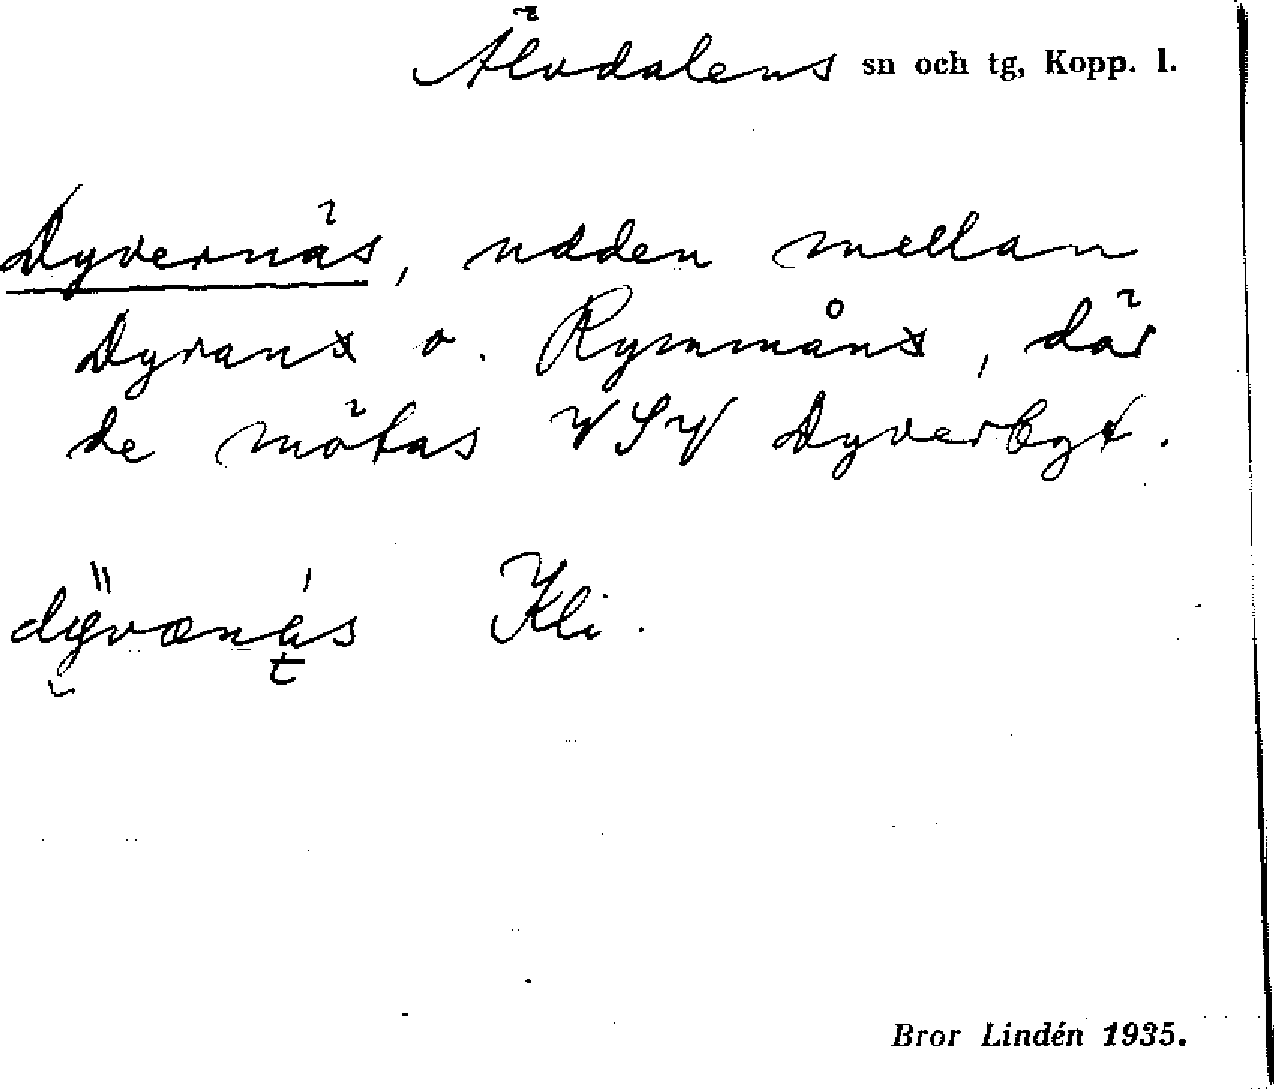 Älvdalens sn och tg, Kopp. l.
Dyvernäs, udden mellan
Dyranx o. Rymmånx, där
de mötas VSV Dyverbgt.
Kli.
Bror Lindén 1935.